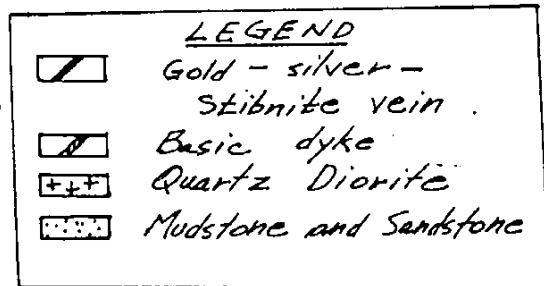 LEGEND
Gold - silver -
Stibnite vein.
Basic dyke
Quartz Diorite
Mudstone and Sandstone